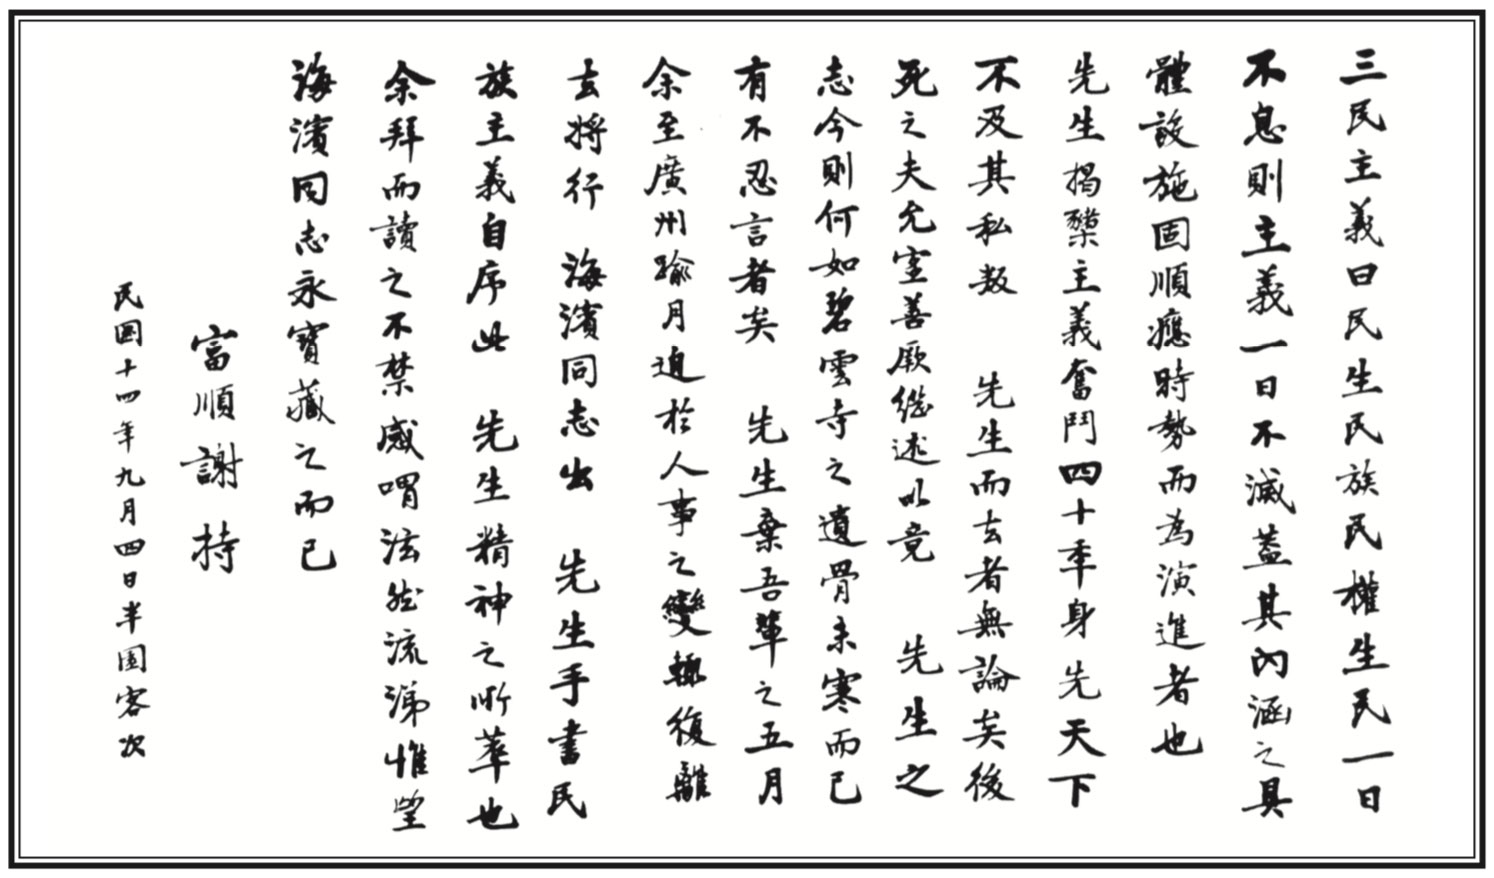 三民主義曰民生民族民權生民一日
不息則主義一日不滅蓋其內涵之具
體設施固順應時勢而為演進者也
先生揭櫫主義奮鬥四十年身先天下
不及其私故　先生而去者無論矣後
死之夫允宜善厥繼述以竟　先生之
志今則何如碧雲寺之遺骨未寒而已
有不忍言者矣　先生棄吾輩之五月
余至廣州踰月迫於人事之變輒復離
去將行　海濱同志出　先生手書民
族主義自序此　先生精神之所萃也
余拜而讀之不禁感喟泫然流涕惟望
海濱同志永寶藏之而已
富順謝持
民國十四年九月四日半園客次